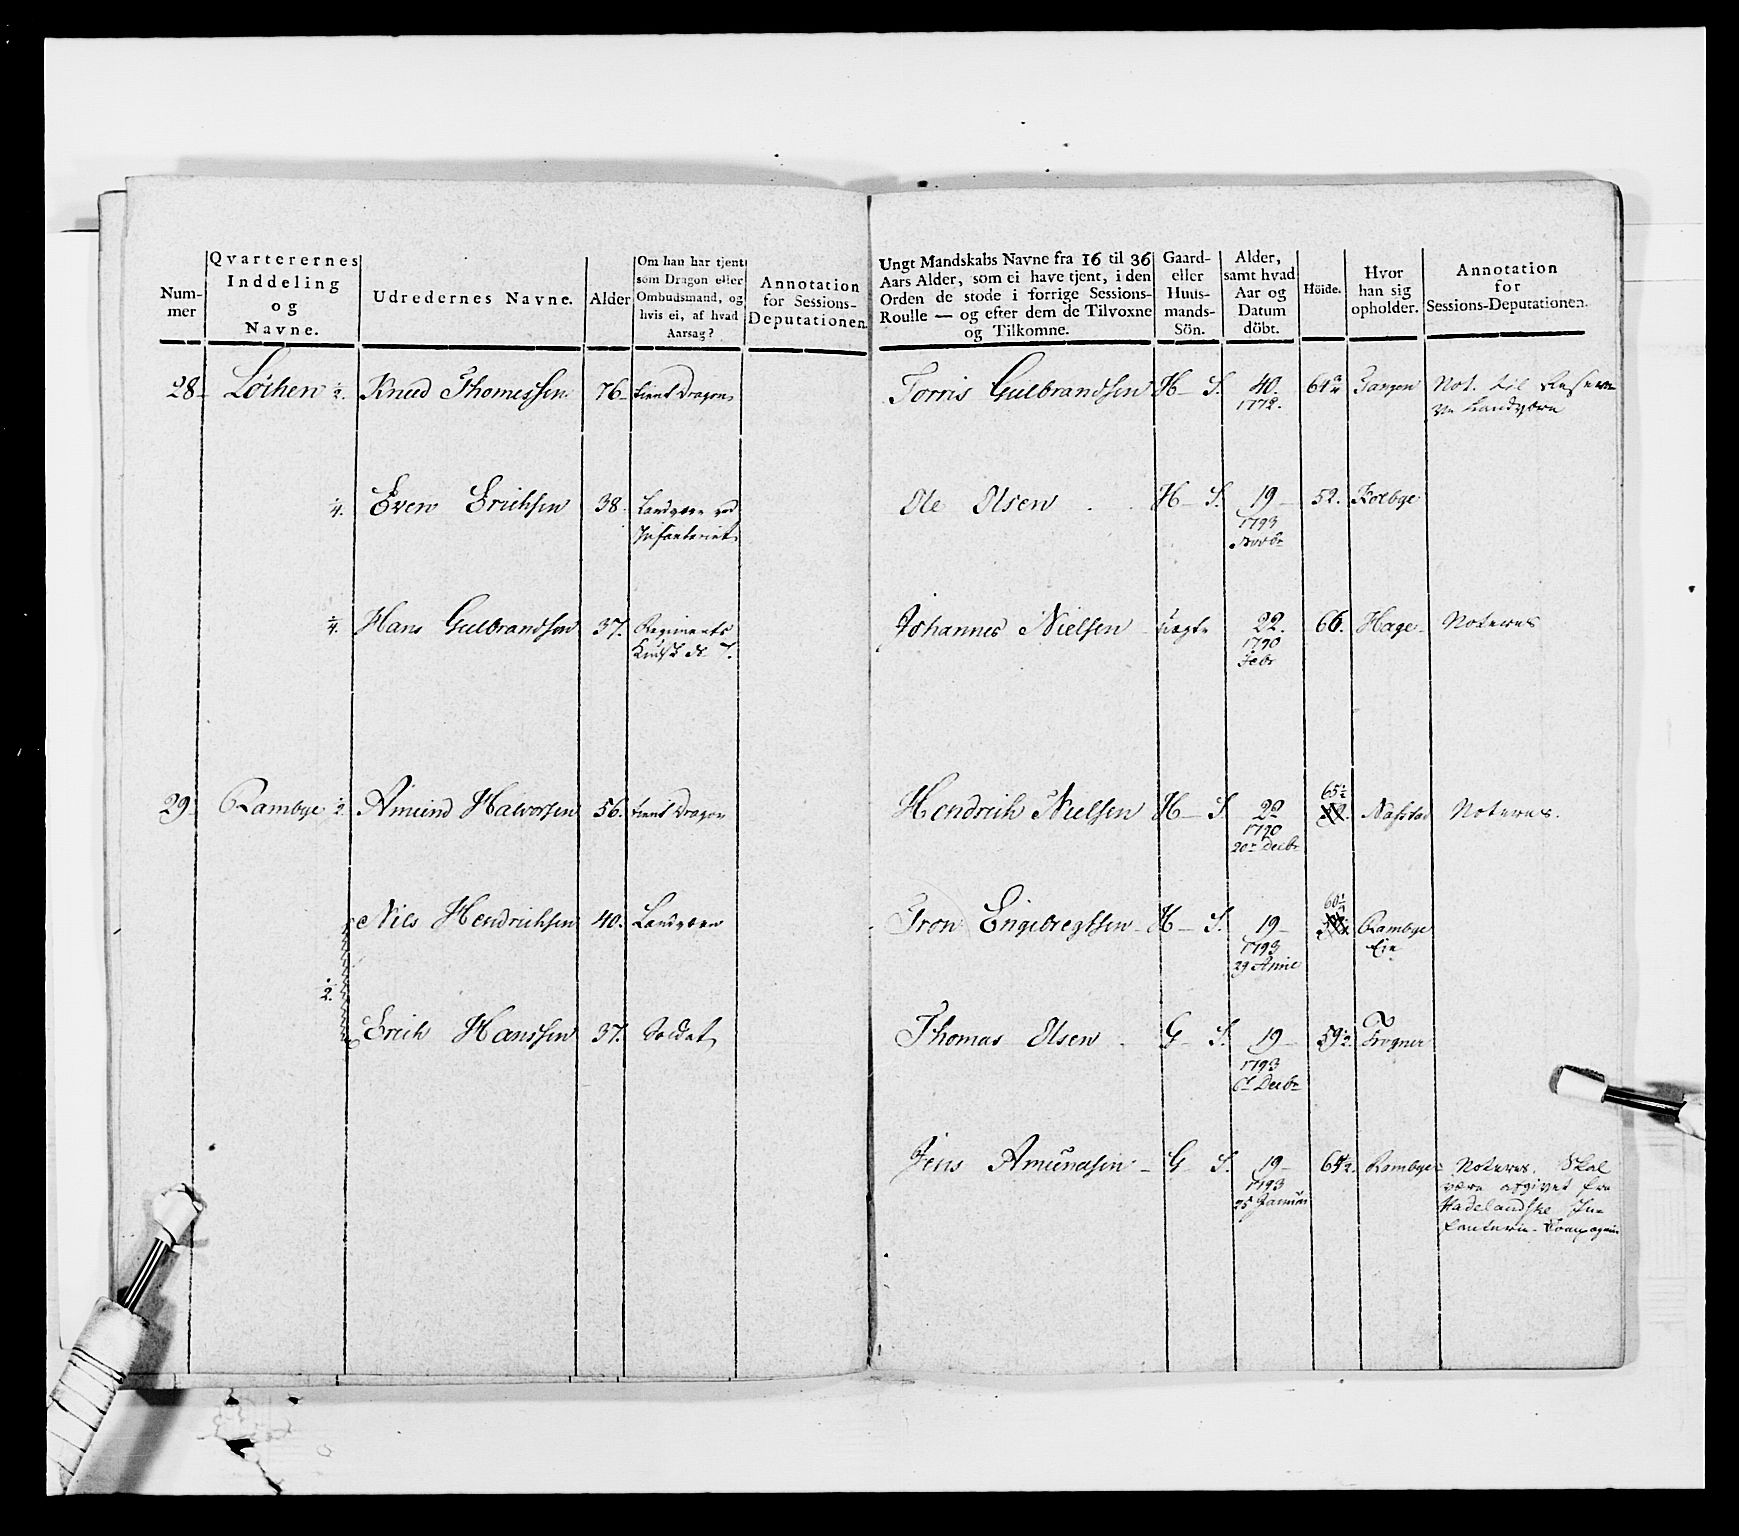 Num-
mer
Qvarterernes
Inddeling
og
Navne.
Udredernes Navne.
Alder
Om han har tjent
som Dragon eller
Ombudsmand, og
hvis ei, af hvad
Aarsag?
Annotation
for Sessions-
Deputationen.
28 Løchen ½. Knud Thomessen 76 tient Dragon
¼. Even Erichsen 38. Landværn ved
Infanteriet
¼. Hans Gulbrandsen 37. Regiments
29 Rambye ½ Amund Halvorsen 56. tient Dragon
Nils Hendrichsen 40. Landværn
½.
Erich Hanssen 37. Soldat
Ungt Mandskabs Navne fra 16 til 36
Aars Alder, som ei have tjent, i den
Orden de stode i forrige Sessions-
Roulle — og efter dem de Tilvoxne
og Tilkomne.
Gaard-
eller
Huus-
mands-
Sön.
Alder,
samt hvad
Aar og
Datum
döbt.
Höide.
Hvor
han sig
opholder.
Annotation
for
Sessions-Deputationen.
Torris Gulbrandsen H S. 40 Tangen Not. til Reser
1772. ve Landværn
Ole Olsen H S. 19 52. Kolbye
1793
Novbr
Johannes Nielsen uægte 22. 66. Hage Noteres
1790
Febr
65½
Hendrich Nielsen H S. 22 Nafstad Noteres.
1790
20de Decbr
60½
Tron Engebregtsen H S. 19 Rambye
1793 Eie
29
Thomas Olsen G S. 19 59½. Frogner
1793
Decbr
Jens Amundsen G S. 19 Rambye Noteres. Skal
1793 være afgivet fra
25 Januari Hadelandske In-
fanterie-Compagnie